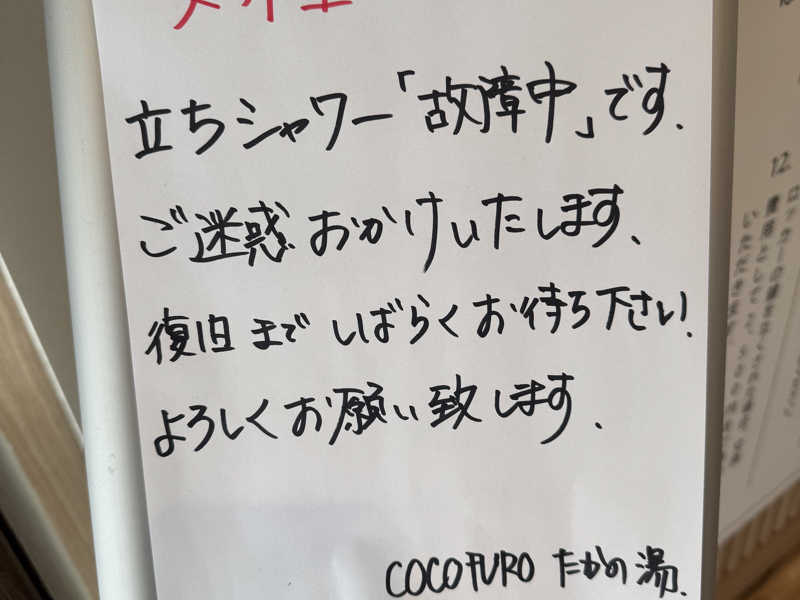 立ちシャワー「故障中」です.
ご迷惑おかけいたします、
復旧までしばらくお待ち下さい!
よろしくお願い致します.
COCOFURO たかの湯.
12